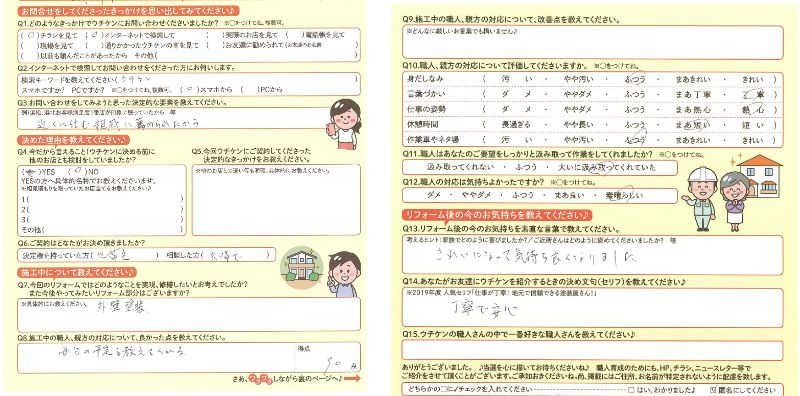 お問合せをしてくださったきっかけを思い出してみてください♪
Q1.どのようなきっかけでウチケンにお問い合わせくださいましたか? ※○をつけてね。複数可。
(○)チラシを見て (○)インターネットで検索して ( )実際のお店を見て ( )電脳帳を見て
( )現場を見て ( )通りかかったウチケンの車を見て ( )お友達に勧められて(お友達のお名前 )
( )以前も頼んだことがあったから その他( )
Q2.インターネットで検索してお問い合わせをくださった方にお伺いします。
検索キーワードを教えてください(ウチケン )
スマホですか? PCですか? ※○をつけてね。複数可。 (○)スマホから ( )PCから
Q3.お問い合わせをしてみようと思った決定的な要素を教えてください。
近くに住む親戚に薦められたから
決めた理由を教えてください♪
Q4.今だから言えること!ウチケンに決める前に
他のお店とも検討をしていましたか?
( )YES (○)NO
YESの方へ具体的な名称でお教えくださいませ。
※相見積もりを取っていたお店全てをお教えください♪
1( )
2( )
3( )
その他( )
Q5.今回ウチケンにご契約してくださった
決定的なきっかけをお教えください。
※他のお店との違い等を含め、具体的にお教えください。
Q6.ご契約はどなたがお決め頂きましたか?
決定権を持っていた方( ) 相談した方( )
施工中について教えてください♪
Q7.今回のリフォームではどのようなことを実現、修繕したいとお考えでしたか?
また今後やってみたいリフォーム部分はございますか?
※具体的にお教えください。
外壁塗装
Q8.施工中の職人、親方の対応について、良かった点を教えてください。
毎日の予定を教えてくれる
得点
90点
さあ、ワクワクしながら裏のページへ♪
Q9.施工中の職人、親方の対応について、改善点を教えてください。
※どんなに厳しいお言葉でも構いません♪
Q10.職人、親方の対応について評価してくださいますか。 ※○をつけてね。
身だしなみ ( 汚い ・ やや汚い ・ ふつう ・ まあきれい ・ きれい )
言葉づかい ( ダメ ・ ややダメ ・ ふつう ・ まあ丁寧 ・ 丁寧 )
仕事の姿勢 ( ダメ ・ ややダメ ・ ふつう ・ まあ熱心 ・ 熱心 )
休憩時間 ( 長過ぎる ・ やや長い ・ ふつう ・ まあ短い ・ 短い )
作業車やネタ場 ( 汚い ・ やや汚い ・ ふつう ・ まあきれい ・ きれい )
Q11.職人はあなたのご要望をしっかりと汲み取って作業をしてくれましたか? ※○をつけてね。
汲み取ってくれない ・ ふつう ・ 大いに汲み取ってくれていた
Q12.職人の対応は気持ちよかったですか? ※○をつけてね。
ダメ ・ ややダメ ・ ふつう ・ まあ良い ・ 素晴らしい
リフォーム後の今のお気持ちを教えてください♪
Q13.リフォーム後の今のお気持ちを素直な言葉で教えてください。
考えるヒント:家族でどのように喜びましたか?/ご近所さんはどのように褒めてくださいましたか? 等
きれいになって気持ち良くなりました。
Q14.あなたがお友達にウチケンを紹介するときの決め文句(セリフ)を教えてください。
※2019年度 人気セリフ「仕事が丁寧!地元で信頼できる塗装屋さん!」
丁寧で安心
Q15.ウチケンの職人さんの中で一番好きな職人さんを教えてください♪
ありがとうございました。♪当選を心に描いてお待ちくださいね♪ 職人育成のためにも、HP、チラシ、ニュースレター等で
ご紹介をさせて頂くことがございます。ご承知おきくださいね。尚、掲載にはご住所、お名前が特定されないように配慮を致します。
どちらかの□に✓チェックを入れてください □はい、わかりました♪ ☑匿名にしてください